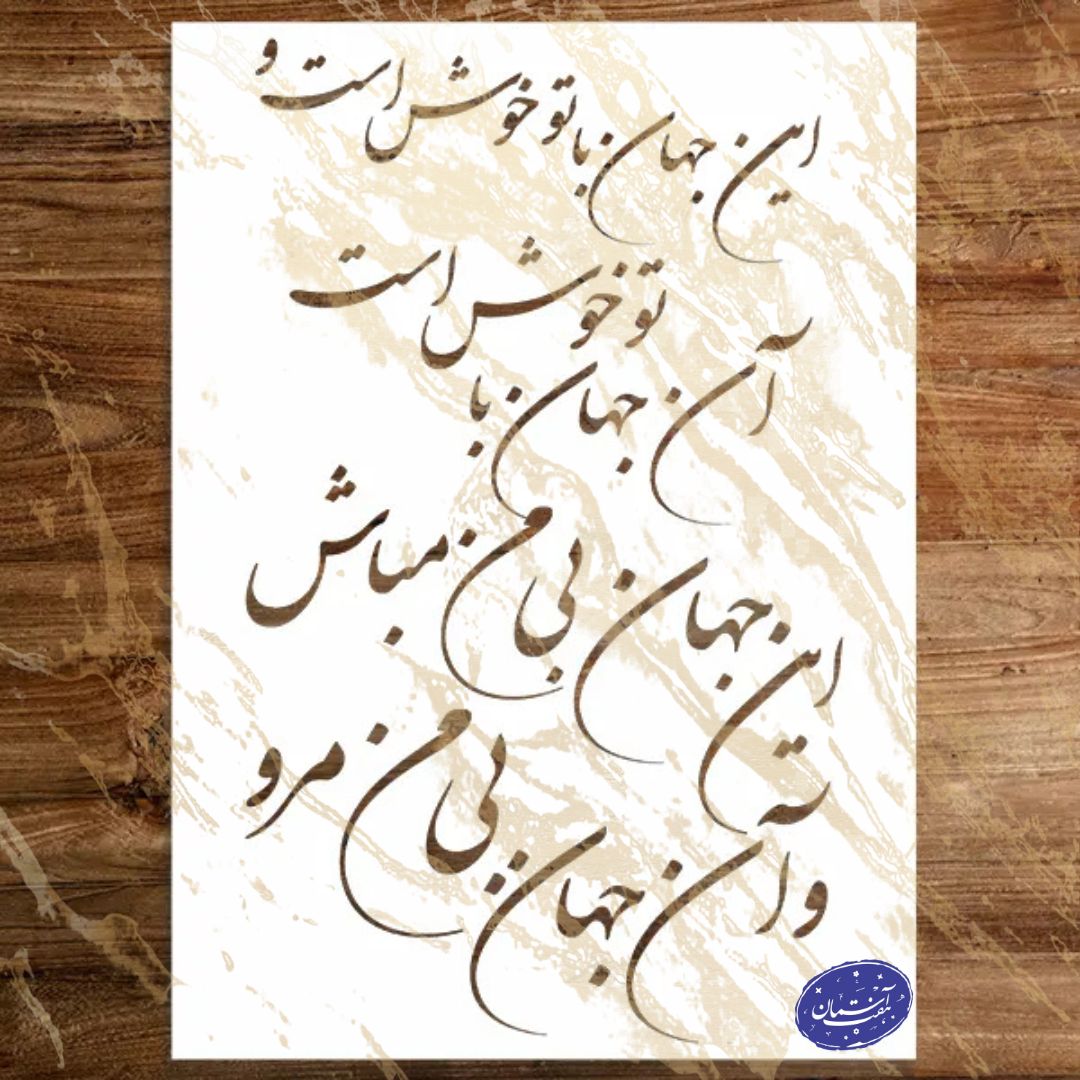 این جهان با تو خوش است و
آن جهان با تو خوش است
این جهان بی من مباش
وآن جهان بی من مرو
هفت آسمان